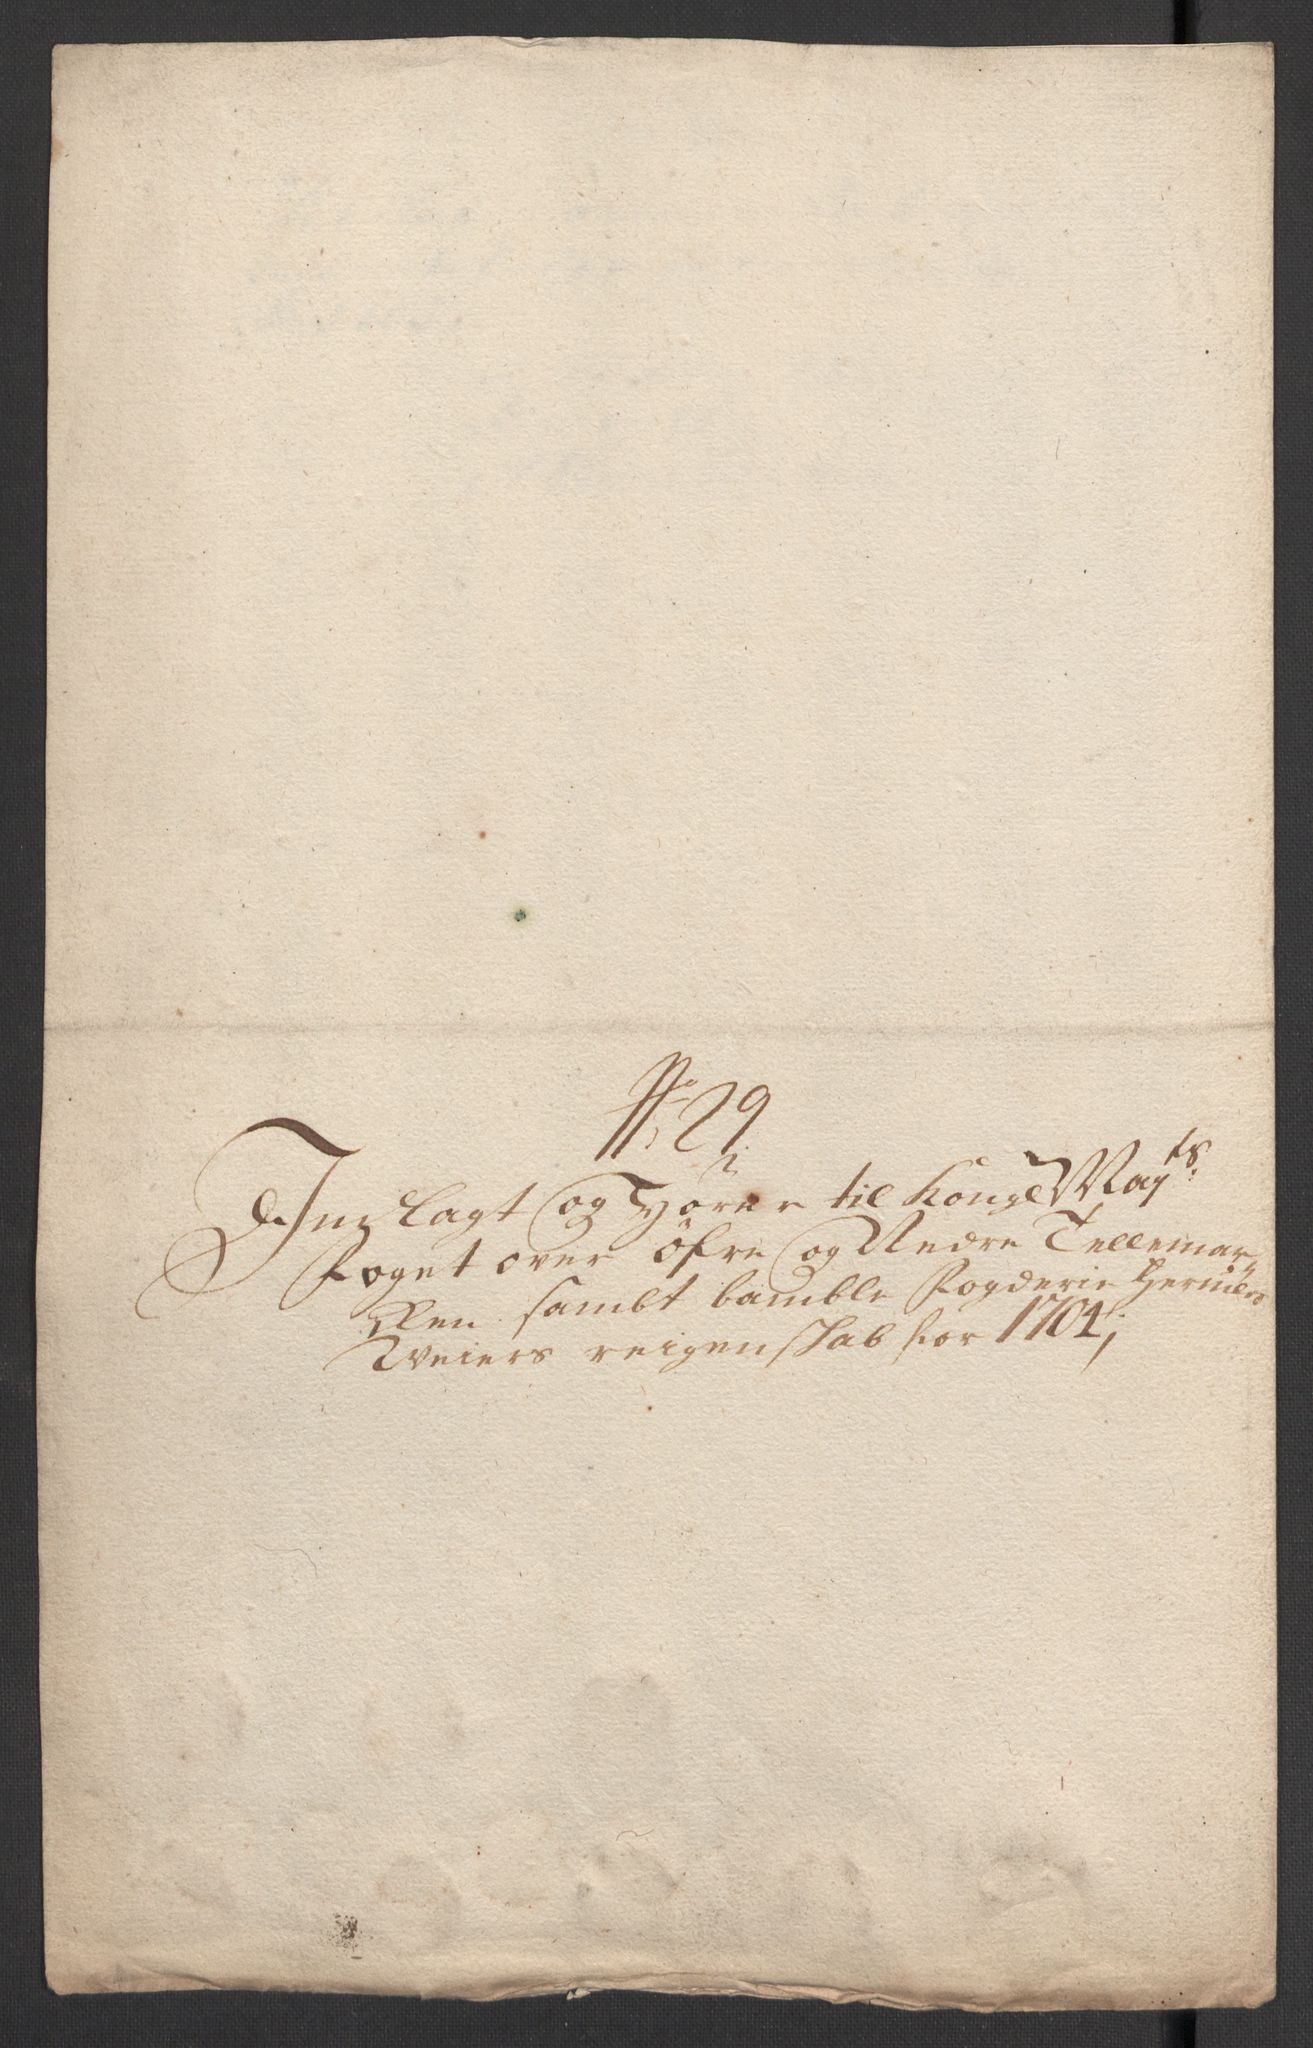 No 29
Indlagt og Hörer til Kongl Mayts:
Foget over Öfre og Nedre Tellemar-
cken samt bamble Fogderie Hermens
Weiers reigenskab for 1704;